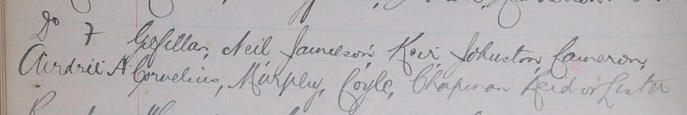 Do 7 Gefillar, Neil Jamieson, Keir, Johnston, Cameron,
Airdrie A Cornelius, Murphy, Coyle, Chapman Reid or Lister